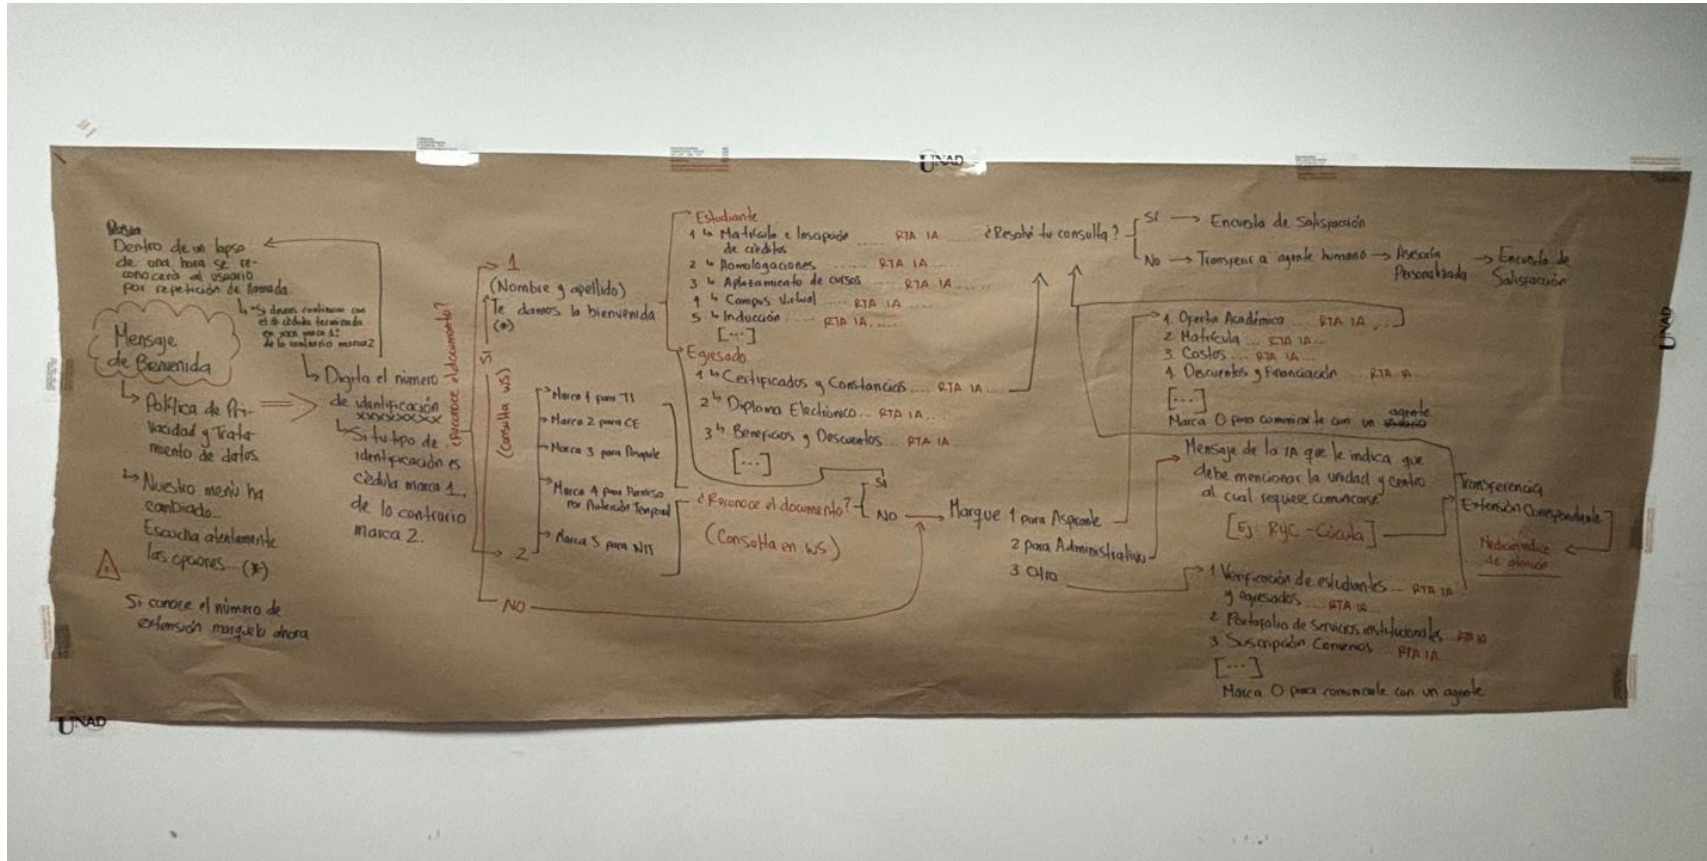 UNAD
Dentro de un lapso
de una hora se re-
conocerá al usuario
por repetición de llamada.
↳ "Si deseas continuar con
el # cédula terminada
en xxx marca 1"
de lo contrario marca 2
Mensaje
de Bienvenida
↳ Política de Pri-
vacidad y Trata-
miento de datos.
↳ Nuestro menú ha
cambiado...
Escucha atentamente
las opciones... (*)
Si conoce el número de
extensión marquelo ahora
↳ Digita el número
de identificación
xxxxxxxxx
↳ Si tu tipo de
identificación es
cédula marca 1,
de lo contrario
marca 2.
¿Reconoce el documento?
SI
(Consulta WS)
1
(Nombre y apellido)
Te damos la bienvenida
(*)
2
→ Marca 1 para TI
→ Marca 2 para CE
→ Marca 3 para
→ Marca 4 para Permiso
por Protección Temporal
→ Marca 5 para NIT
NO
Estudiante
1 ↳ Matrícula e Inscripción
de créditos ..... RTA IA .....
2 ↳ Homologaciones ....... RTA IA ....
3 ↳ Aplazamiento de cursos ... RTA IA ....
4 ↳ Campus Virtual .... RTA IA ....
5 ↳ Inducción ..... RTA IA .....
[...]
Egresado
1 ↳ Certificados y Constancias .... RTA IA ....
2 ↳ Diploma Electrónico ... RTA IA ....
3 ↳ Beneficios y Descuentos ... RTA IA
[...]
¿Reconoce el documento?
(Consulta en WS)
SI
NO
¿Resolví tu consulta?
SI → Encuesta de Satisfacción
No → Transferir a agente humano → Asesoría
Personalizada → Encuesta de
Satisfacción
Marque 1 para Aspirante
2 para Administrativo
3 Otro
1. Oferta Académica ... RTA IA ....
2 Matrícula ... RTA IA ...
3 Costos ... RTA IA ...
4 Descuentos y Financiación .... RTA IA...
[...]
Marca 0 para comunicarte con un agente
Mensaje de la IA que le indica que
debe mencionar la unidad y centro
al cual requiere comunicarse
[Ej: RyC - Cúcuta]
Transferencia
Extensión Correspondiente
1 Verificación de estudiantes ... RTA IA
y egresados .... RTA IA ...
2 Portafolio de Servicios institucionales ... RTA IA
3 Suscripción Convenios ... RTA IA
[...]
Marca 0 para comunicarte con un agente
UNAD
UNAD